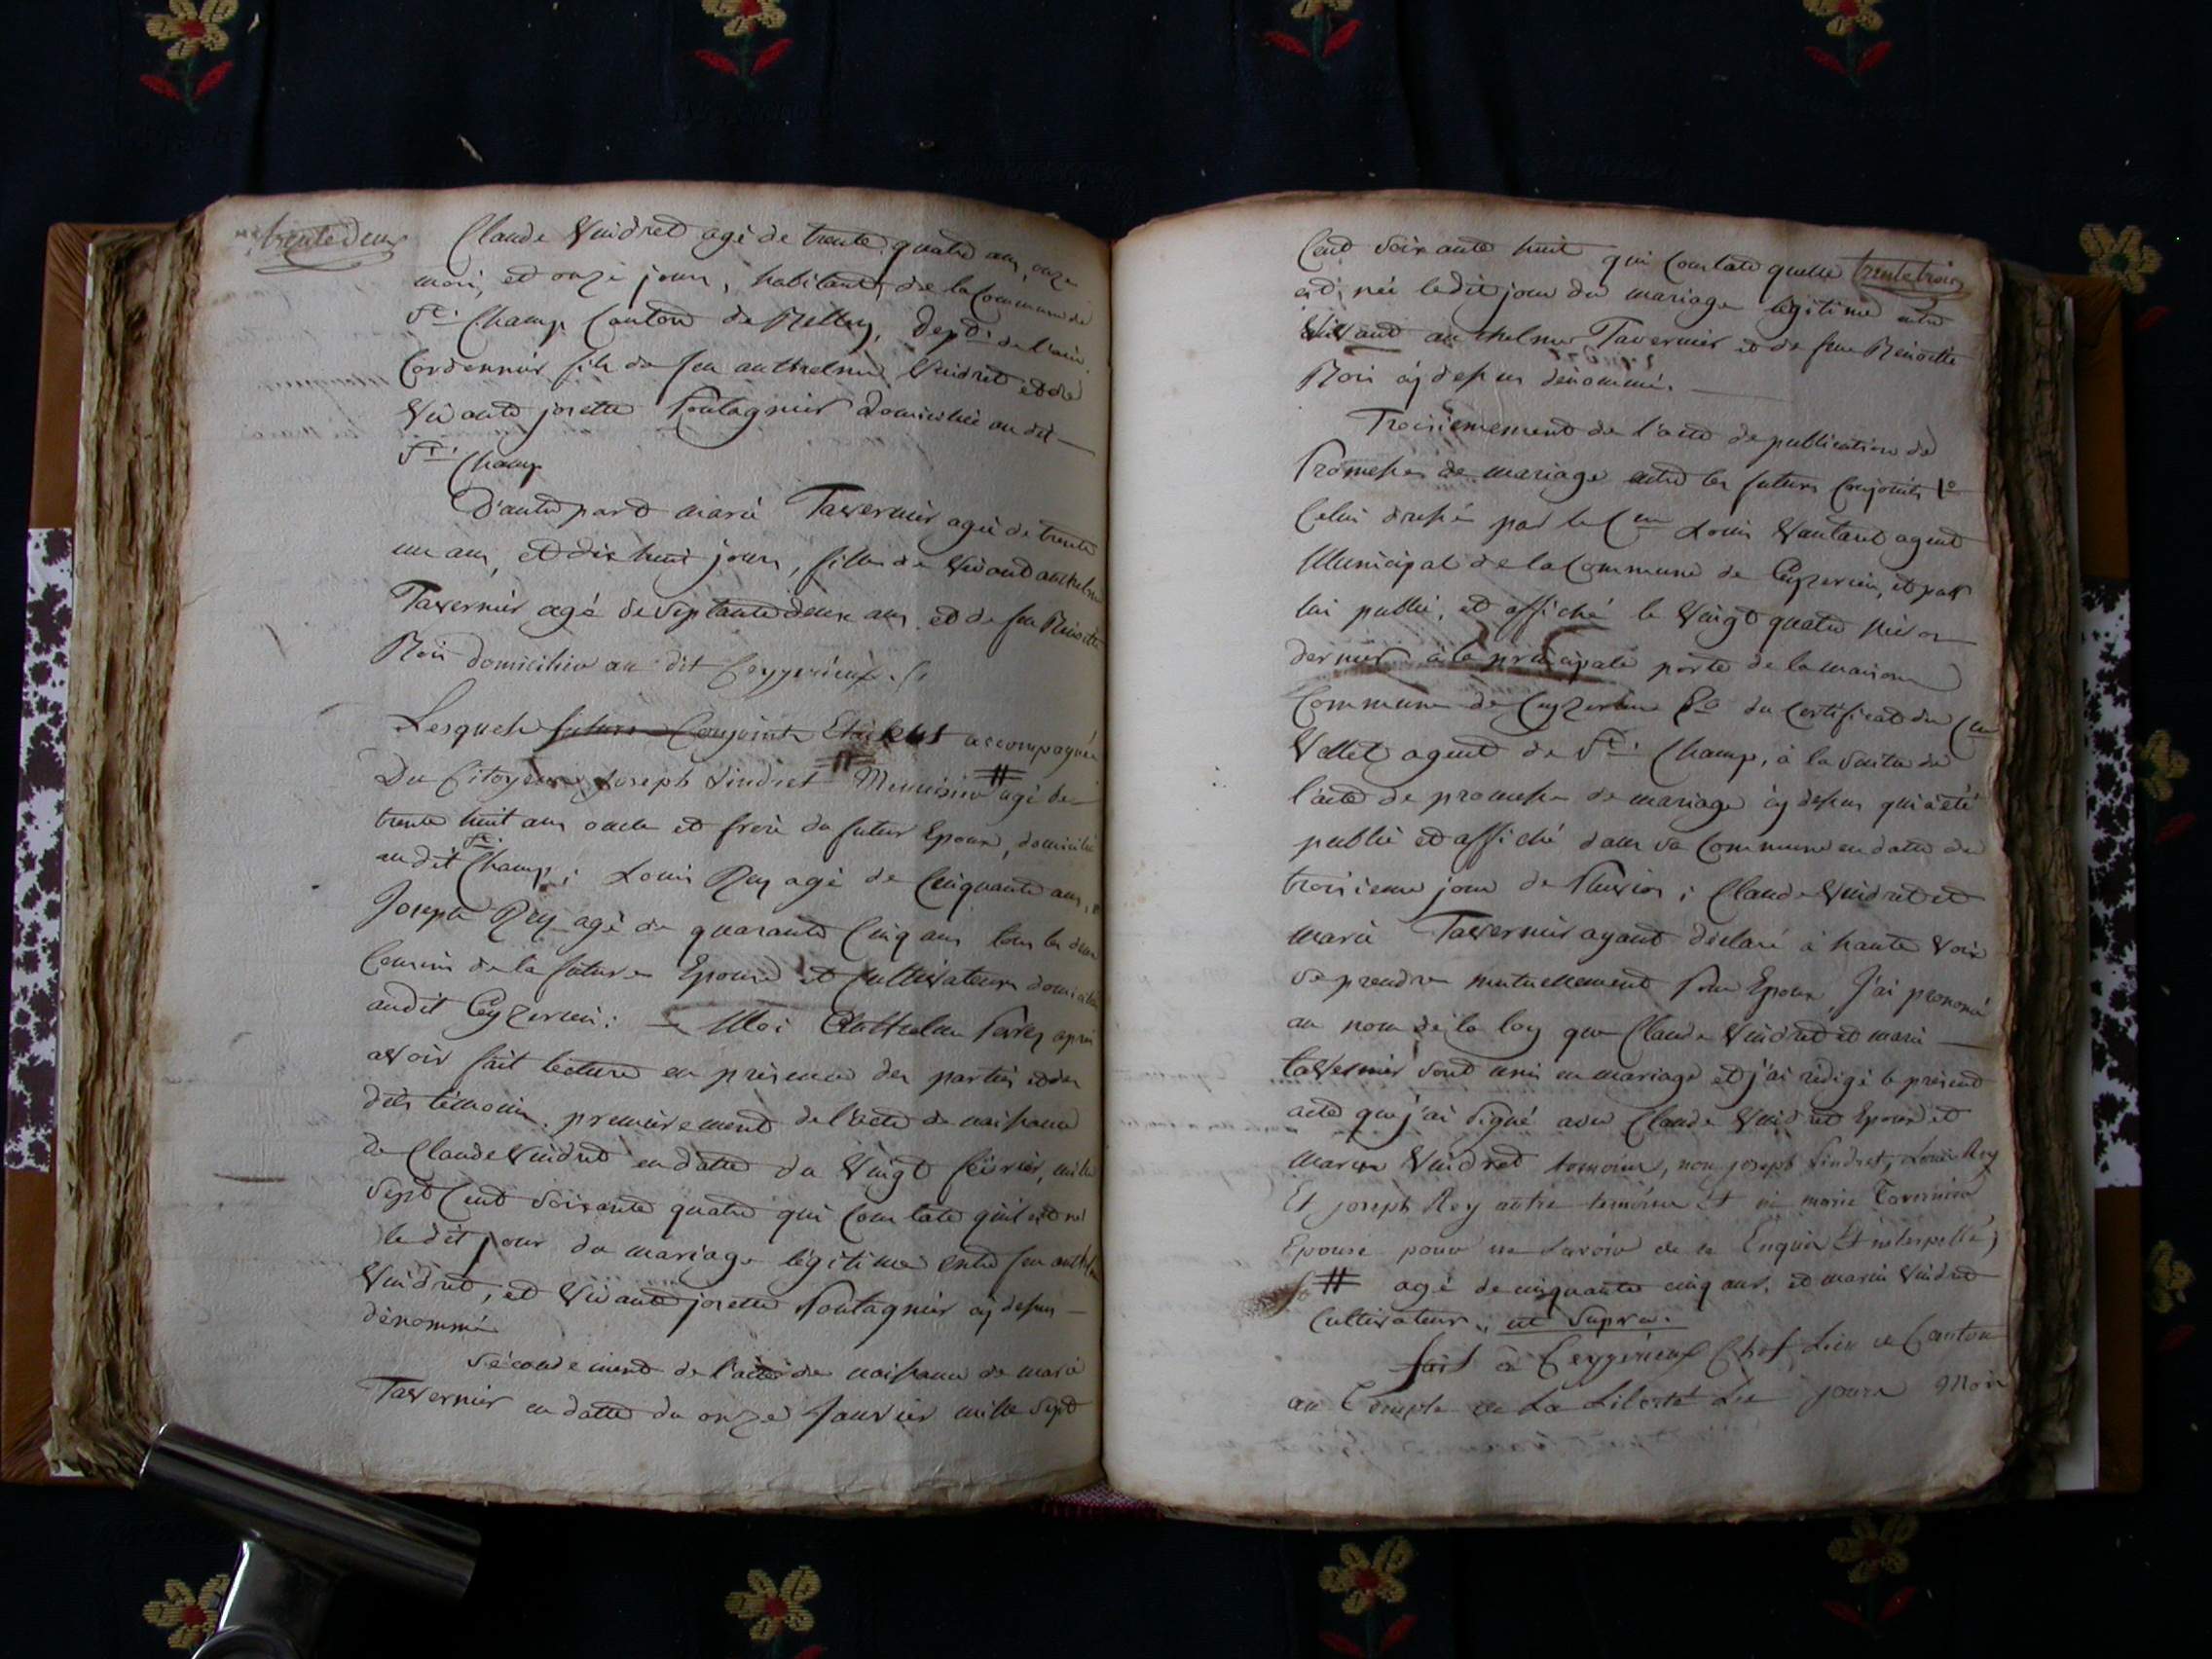 trente deux
Claude Vuidret agé de trente quatre ans, onze
mois, et onze jours, habitant de la Commune de
St. Champ Canton de Belley, Dept. de l'ain
Cordonnier fils de feu anthelme Vuidret et de
Vivante josette Pontagnier domiciliée au dit
St. Champ
D'autre part marie Tavernier agée de trente
un ans, et dix huit jours, fille de Vivant anthelme
Tavernier agé de septante deux ans et de feu Benoite
Roi domicilié au dit Ceyzerieux
Lesquels futurs Conjoints Etoient accompagnés
Du Citoyen Joseph Sindret Menuisier # agé de
trente huit ans oncle et frere du futur Epoux, domicilié
au dit St. Champ; Louis Rey agé de Cinquante ans,
Joseph Rey agé de quarante Cinq ans tous les deux
Cousins de la future Epouse et Cultivateurs domiciliés
audit Ceyzerieu: Moi Anthelme après
avoir fait lecture en présence des parties et des
dits témoins, premierement de l'acte de naissance
de Claude Vuidret en datte du Vingt fevrier, mille
sept Cent soixante quatre qui Constate qu'il est né
le dit jour du mariage légitime entre feu anthelme
Vuidret, et Vivante josette Pontagnier cy dessus
dénommés
Secondement de l'acte de naissance de marie
Tavernier en datte du onze Janvier mille sept
Cent soixante huit qui Constate quelle trente trois
est née ledit jour du mariage légitime entre
Vivant anthelme Tavernier et de feue Benoitte
Roi cy dessus dénommés.
Troisiemement de l'acte de publication de
Promesses de mariage entre les futurs Conjoints 1o
Celui dressé par le Cen Louis Vautaret agent
Municipal de la Commune de Ceyzerieu, et par
lui publié, et affiché le Vingt quatre Nivos
dernier à la principale porte de la maison
Commune de Ceyzerieu 2o du Certificat du Cen
Vellet agent de St. Champ, à la suite de
l'acte de promesse de mariage cy dessus qui a été
publié et affiché dans sa Commune en datte du
troisieme jour de Pluvios; Claude Vuidret et
marie Tavernier ayant déclaré à haute Voix
se prendre mutuellement pour Epoux J'ai prononcé
au nom de la loy que Claude Vuidret et marie
taVernier sont unis en mariage et j'ai rédigé le présent
acte que j'ai signé avec Claude Vuidret Epoux et
marin Vuidret temoins, non joseph Sindret, Louis Rey
Et joseph Rey autre temoins Et ni marie Tavernier
Epouse pour ne savoir de ce Enquis Et interpellés
# agé de cinquante cinq ans. et marin Vuidret
Cultivateur, ut Supra.
fait à Ceyzerieux Chef Lieu de Canton
au Temple de La Liberté Les jours mois